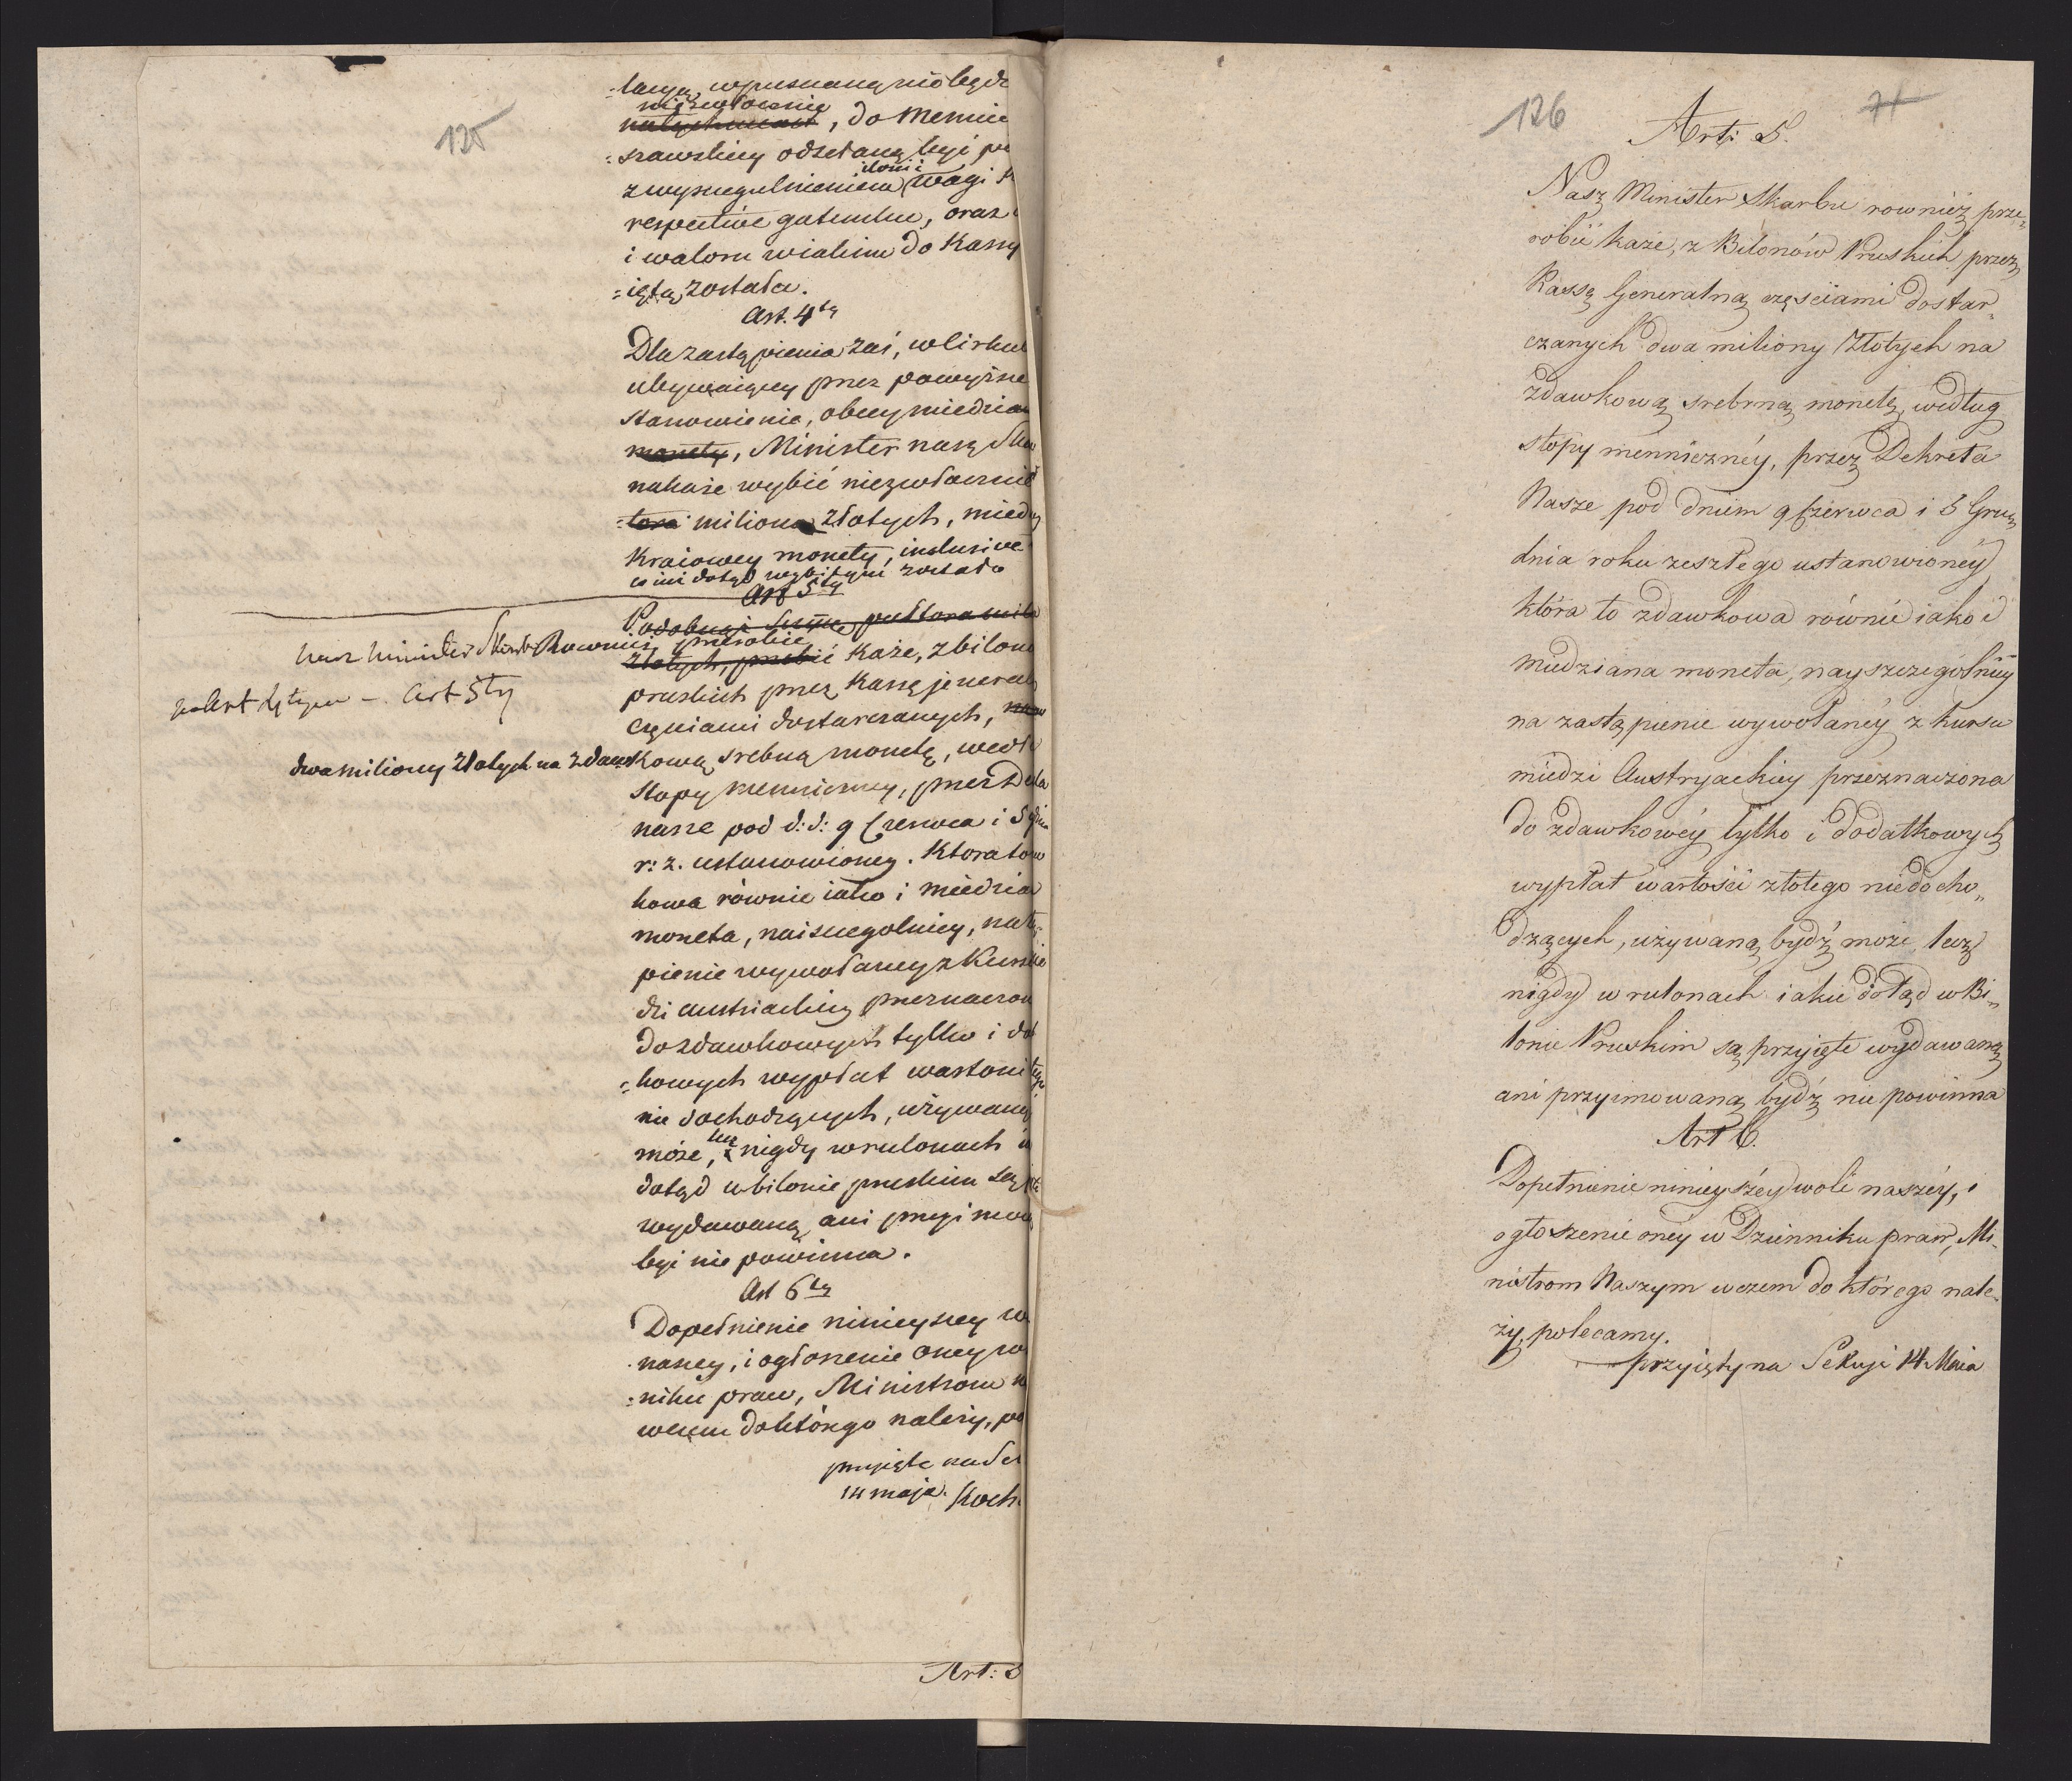 125
:lacyą wypuszczaną nie będz
niezwłocznie
natychmiast, do Mennic
:szawskiey odsełaną być po
ilości i
z wyszczegulnieniem wagi
respective gatunku, oraz
i waloru wiakim do Kassy
:iętą została.
Art. 4ty
Dla zastąpienia zaś, w Cirkul
ubywaiącey przez powyższe
stanowienie, obcey miedzian
monety, Minister nasz Skar
nakaże wybić niezwłocznie
:tora miliona złotych, miedz
Kraiowey monety, inclusive
co iuż dotąd wybitym zostało
Art 5ty
Podobnąż Summę pułtora mil
nasz Minister Skarbu Rownież przerobić
złotych, przebić każe, z bilonó
po Art 4tym – Art 5ty
pruskich przez Kassę jeneral
częściami dostarczanych,
dwa miliony złotych na zdawkową srebną monetę, wedł
stopy menniczney, przez Dekra
nasze pod d: d: 9 Czerwca i 5
r: z. ustanowioney. Ktora to
kowa równie iako i miedzia
moneta, naiszczegolniey, na
pienie wywołaney z Kursu
dzi austriackiey przeznaczon
do zdawkowych tylko i do
:kowych wypłat wartości
nie dochodzących, używaną
może, lecz nigdy w rulonach
dotąd w bilonie pruskim są
wydawaną, ani przyimow
być nie powinna.
Art 6ty
Dopełnienie ninieyszey w
naszey, i ogłoszenie oney w
:niku praw, Ministrom
wczem do którego należy, po
przyięte na Se
14 maja. Koch
Art: 5
126
71
Art: 5.
Nasz Minister Skarbu rownież prze„
robić każe, z Bilonów Pruskich przez
Kassę Generalną częściami dostar„
czanych dwa miliony Złotych na
zdawkową srebrną monetę, według
stopy mennicznéy, przez Dekreta
Nasze pod dniem 9 Czerwca i 5 Gru„
dnia roku zeszłego ustanowionéy
która to zdawkowa równie iako i
miedziana moneta, nayszczególniéy
na zastąpienie wywołanéy z kursu
miedzi Austryackiey przeznaczona
do zdawkowéy tylko i dodatkowych
wypłat wartości złotego niedocho„
dzących, używaną bydź może, lecz
nigdy w rulonach iakie dotąd w Bi„
lonie Pruskim są przyięte wydawaną
ani przyimowaną bydź nie powinna
Art 6.
Dopełnienie ninieyszéy woli naszéy, i
ogłoszenie onéy w Dzienniku praw, Mi„
nistrom Naszym wczem do którego nale„
ży, polecamy.
przyięty na Sessyi 14 Maia